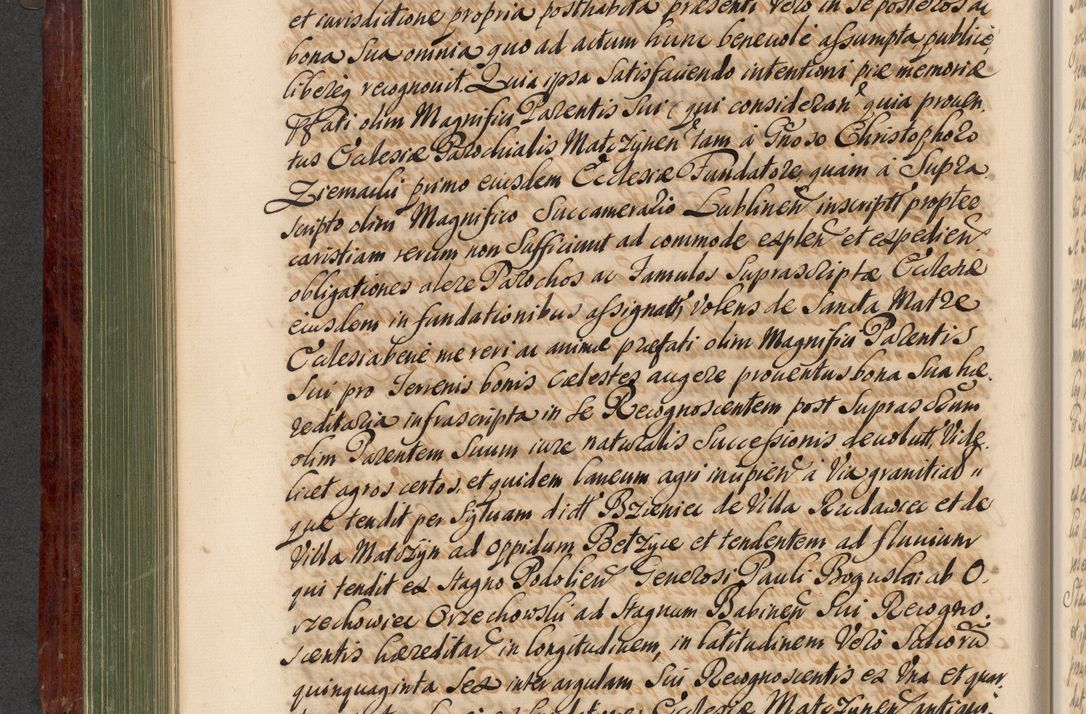 et iurisdictione propria posthabita præsenti Vero in se posteros ac
bona Sua omnia quo ad actum hunc benevole assumpta publice
libereq recognovit. Quia ipsa Satisfaciendo intentioni piæ memoriæ
Præfati olim Magnifici Parentis Sui (qui consideran quia proven
tus Ecclesiæ Parochialis Matczynen tam á Gnoso Christophoro
Ziemacki primo eiusdem Ecclesiæ Fundatore quam á Supra
scripto olim Magnifico Succamerario Lublinen inscripti propter
caristiam rerum non Sufficiunt ad commode explen et expedien
obligationes alere Parochos ac Famulos Suprascriptæ Ecclesiæ
eiusdem in fundationibus assignatt, volens de Sancta Matre
Ecclesia bene mereri ac animæ præfati olim Magnifici Parentis
Sui pro Terrenis bonis cælestes augere proventus bona Sua hæ-
reditaria infrascripta in se Recognoscentem post Suprascrum
olim Parentem Suum iure naturalis Successionis devolutt, Vide
licet agros certos, et quidem laneum agri incipien á Via granitiali
quæ tendit per Sylvam dictt Brzenice de Villa Rudawiec et de
Villa Matczyn ad oppidum Betzyce et tendentem ad fluvium
qui tendit ex Stagno Podolien Generosi Pauli Boguslai ab O-
rzechowiec Orzechowski ad Stagnum Babinen Sui Recogno-
scentis hæreditar in longitudinem, in latitudinem Vero Saliorū
quinquaginta Sex inter argulam Sui Recognoscentis ex Una et quar
Ecclesiæ Matczynen antiqui